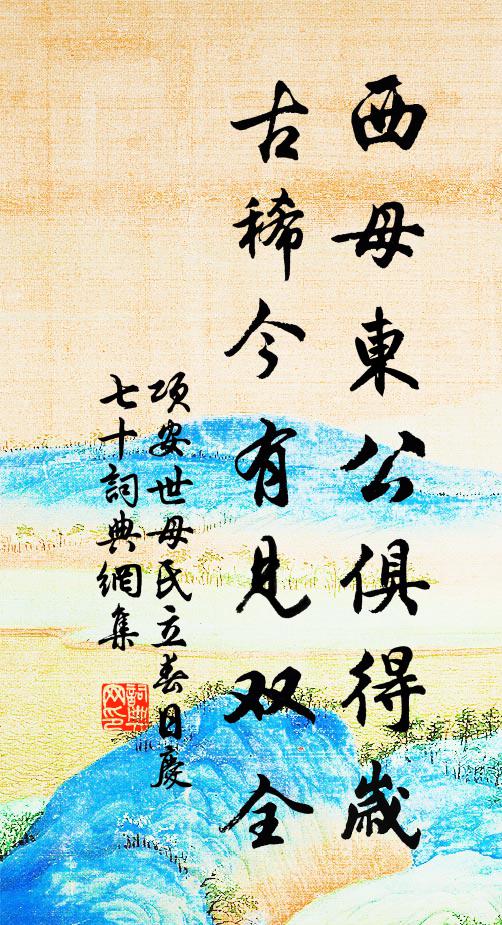 西母東公俱得歲
古稀今有見双全
項安世母氏立春日慶
七十詞典網集
詞典网印